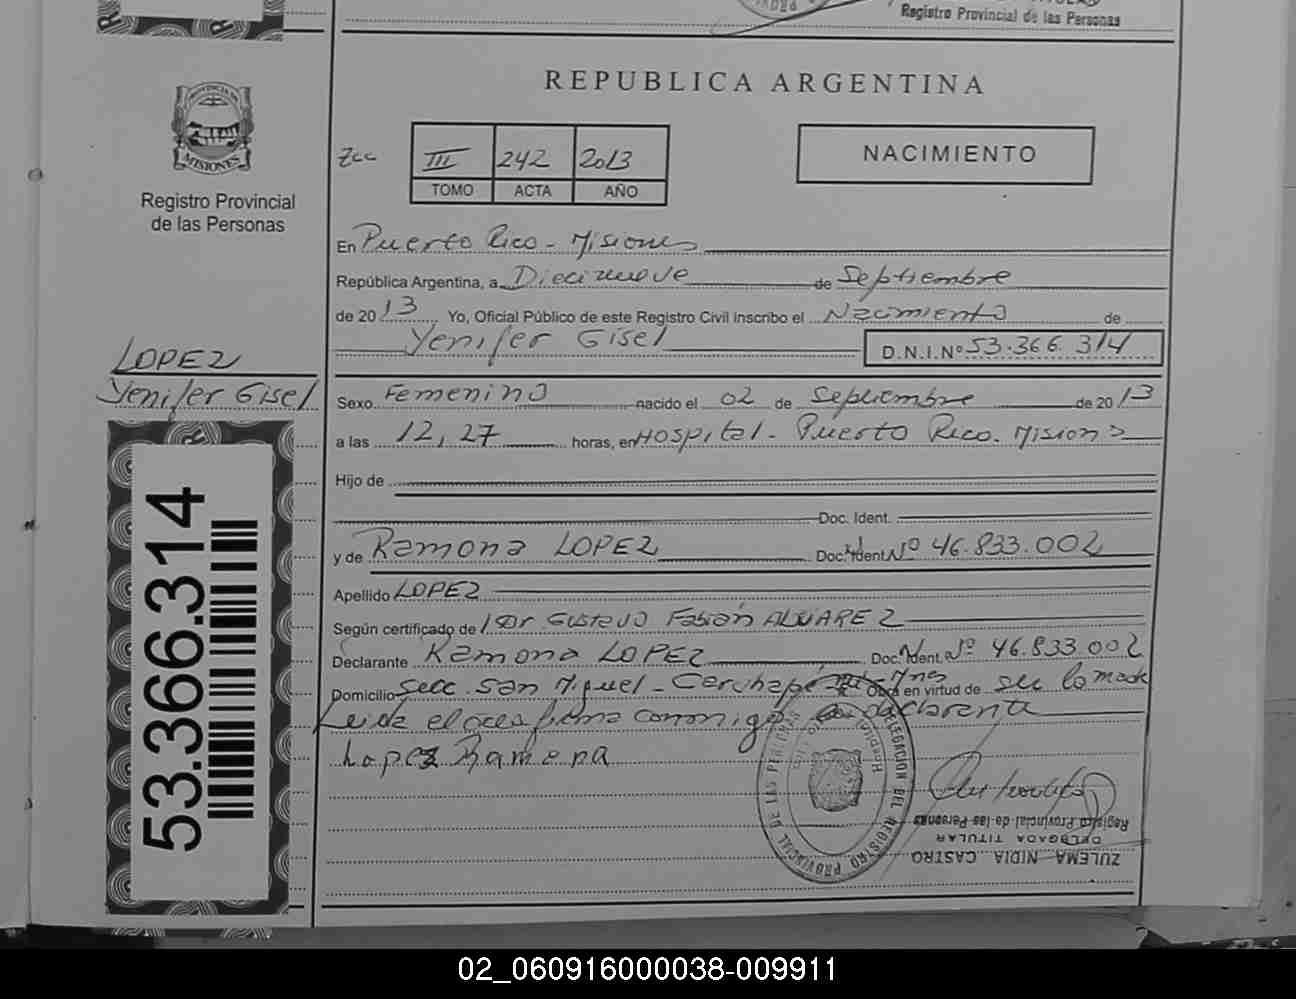 Registro Provincial de las Personas
REPUBLICA ARGENTINA
PROVINCIA DE
MISIONES
Registro Provincial
de las Personas
III 242 2013
TOMO ACTA AÑO
NACIMIENTO
En Puerto Rico - Misiones
República Argentina, a Diecinueve de Septiembre
de 2013 Yo, Oficial Público de este Registro Civil inscribo el Nacimiento de
Yenifer Gisel D.N.I.Nº 53.366.314
LOPEZ
Yenifer Gisel
Sexo Femenino nacido el 02 de Septiembre de 2013
a las 12,27 horas, en Hospital - Puerto Rico. Misions
Hijo de
Doc. Ident.
y de Ramona LOPEZ Doc. Ident. Nº 46.833.002
Apellido LOPEZ
Según certificado de Dr Gustavo Fabián ALVAREZ
Declarante Ramona LOPEZ Doc. Ident. Nº 46.833.002
Domicilio Secc. San Miguel - Caruhapé - Mnes Obra en virtud de ser la madre
Leida el acta firma conmigo la declarante
Lopez Ramona
53.366.314
DELEGACION DEL REGISTRO PROVINCIAL DE LAS PERSONAS
Registro Provincial de las Personas
DELEGADA TITULAR
ZULEMA NIDIA CASTRO
02_060916000038-009911